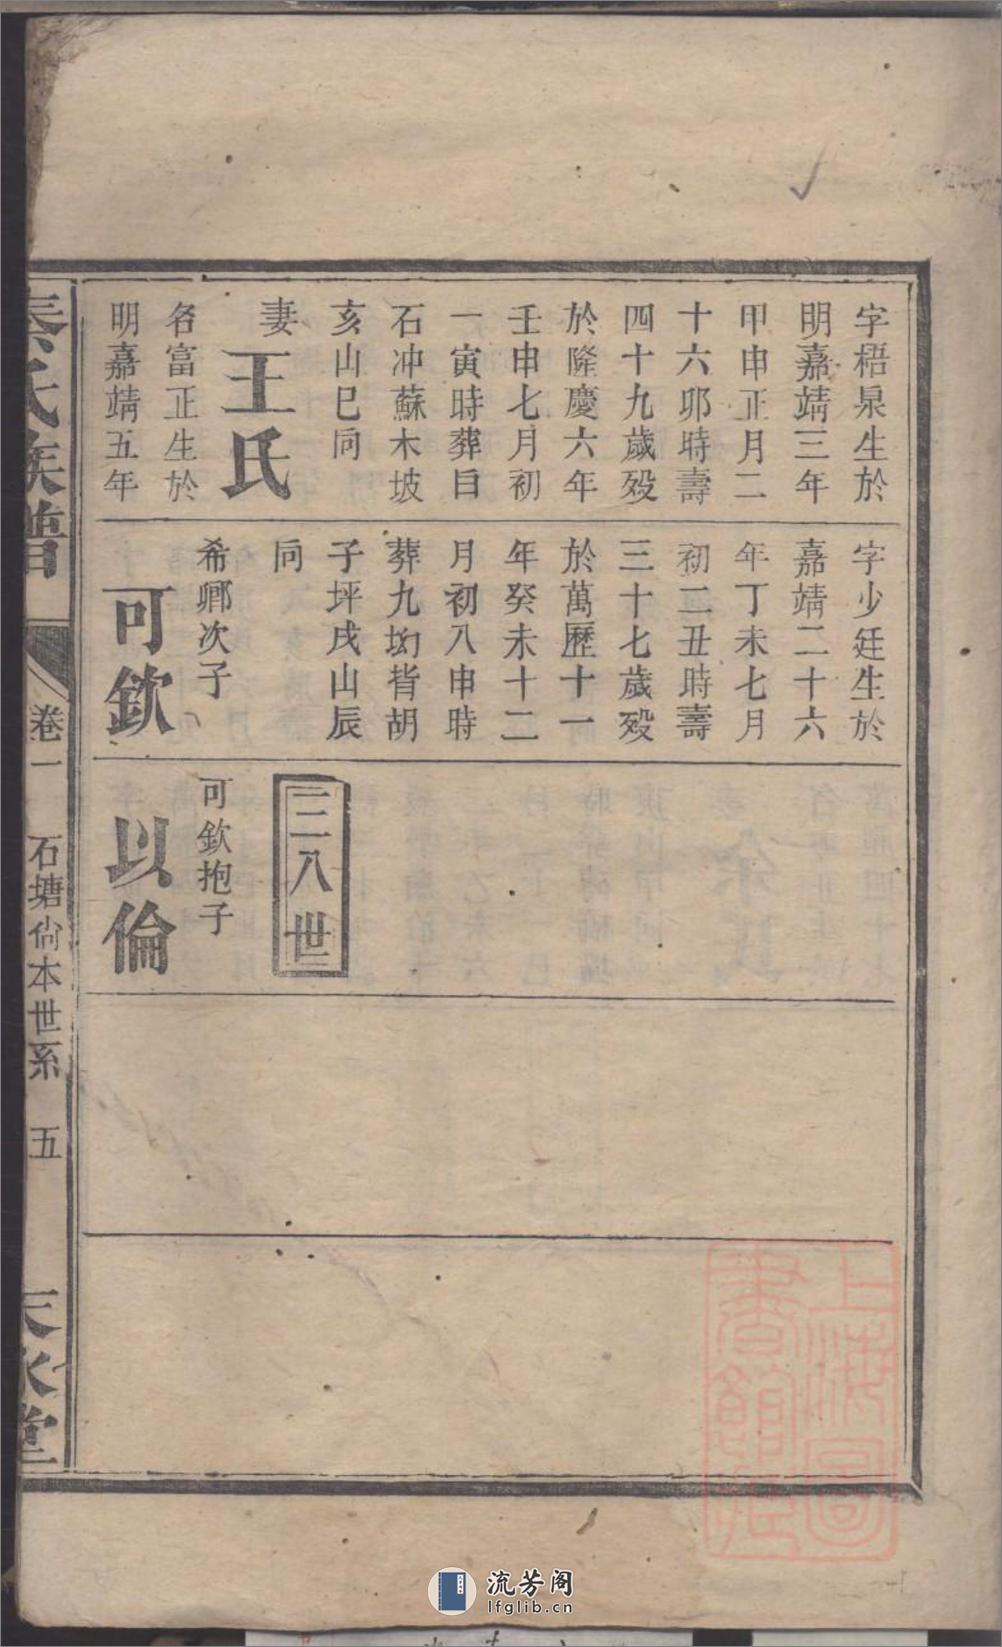 字梧泉生於
明嘉靖三年
甲申正月二
十六卯時壽
四十九歲歿
於隆慶六年
壬申七月初
一寅時葬自
石冲蘇木坡
亥山巳向
妻王氏
名富正生於
明嘉靖五年
字少廷生於
嘉靖二十六
年丁未七月
初二丑時壽
三十七歲歿
於萬歷十一
年癸未十二
月初八申時
葬九㘭背胡
子坪戌山辰
向
希卿次子
可欽
三八世
可欽抱子
以倫
秦氏族譜
卷一
石塘尙本世系
五
天水堂
上海圖
書館藏
流芳阁
lfglib.cn